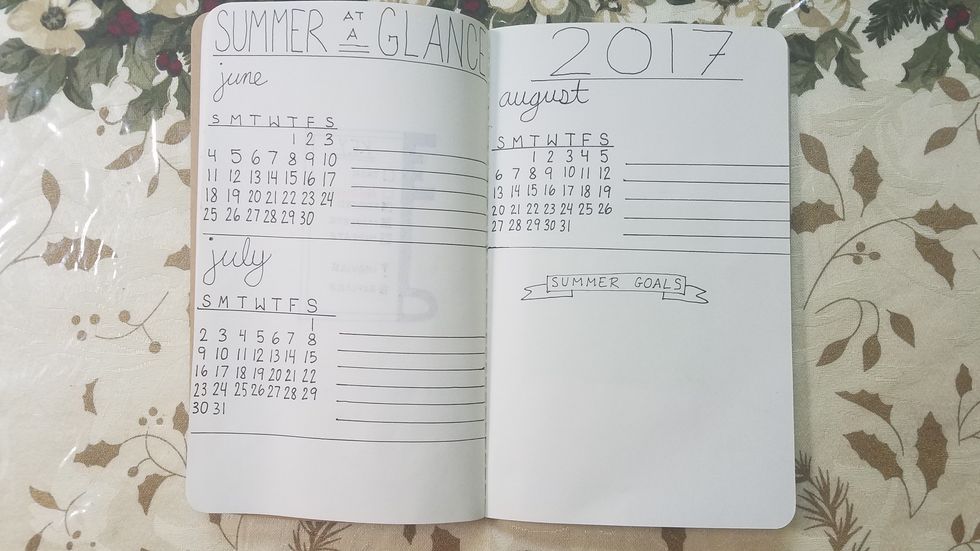 SUMMER AT A GLANCE
june
S M T W T F S
1 2 3
4 5 6 7 8 9 10
11 12 13 14 15 16 17
18 19 20 21 22 23 24
25 26 27 28 29 30
july
S M T W T F S
1
2 3 4 5 6 7 8
9 10 11 12 13 14 15
16 17 18 19 20 21 22
23 24 25 26 27 28 29
30 31
2017
august
S M T W T F S
1 2 3 4 5
6 7 8 9 10 11 12
13 14 15 16 17 18 19
20 21 22 23 24 25 26
27 28 29 30 31
SUMMER GOALS